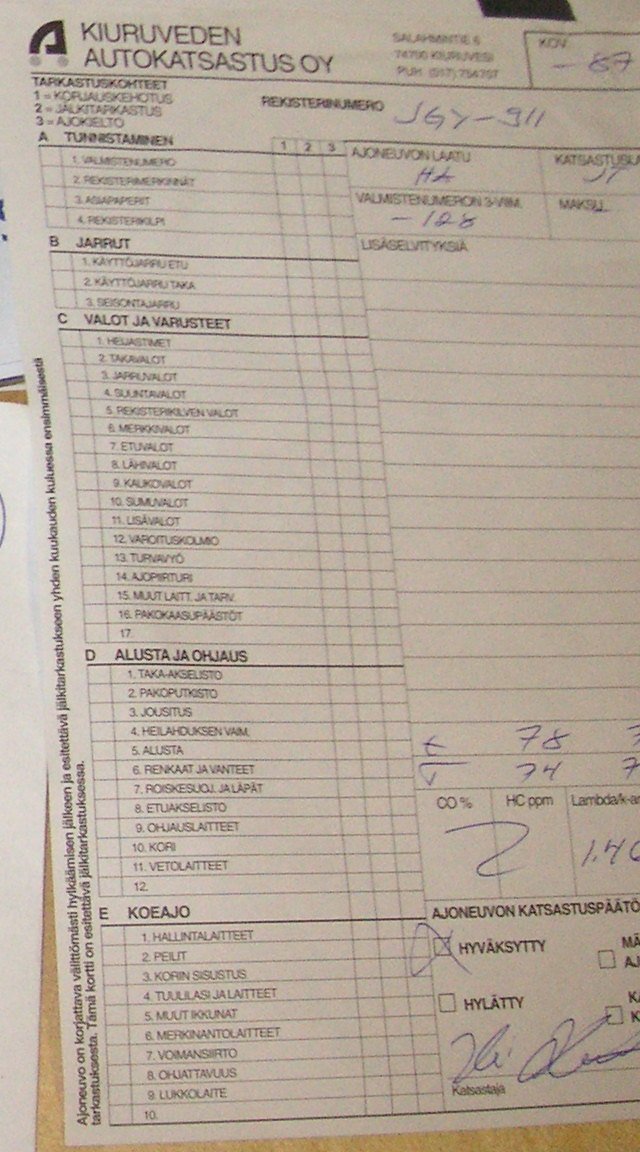 KIURUVEDEN
AUTOKATSASTUS OY
SALAHMINTIE 6
74700 KIURUVESI
PUH. (017) 754797
KOV.
-87
TARKASTUSKOHTEET
1 = KORJAUSKEHOTUS
2 = JÄLKITARKASTUS
3 = AJOKIELTO
REKISTERINUMERO JGY-911
A TUNNISTAMINEN 1 2 3
1. VALMISTENUMERO
2. REKISTERIMERKINNÄT
3. ASIAPAPERIT
4. REKISTERIKILPI
AJONEUVON LAATU
HA
KATSASTUSLA
JT
VALMISTENUMERON 3-VIIM.
-128
MAKSU
LISÄSELVITYKSIÄ
B JARRUT
1. KÄYTTÖJARRU ETU
2. KÄYTTÖJARRU TAKA
3. SEISONTAJARRU
C VALOT JA VARUSTEET
1. HEIJASTIMET
2. TAKAVALOT
3. JARRUVALOT
4. SUUNTAVALOT
5. REKISTERIKILVEN VALOT
6. MERKKIVALOT
7. ETUVALOT
8. LÄHIVALOT
9. KAUKOVALOT
10. SUMUVALOT
11. LISÄVALOT
12. VAROITUSKOLMIO
13. TURVAVYÖ
14. AJOPIIRTURI
15. MUUT LAITT. JA TARV.
16. PAKOKAASUPÄÄSTÖT
17.
D ALUSTA JA OHJAUS
1. TAKA-AKSELISTO
2. PAKOPUTKISTO
3. JOUSITUS
4. HEILAHDUKSEN VAIM.
5. ALUSTA
6. RENKAAT JA VANTEET
7. ROISKESUOJ. JA LÄPÄT
8. ETUAKSELISTO
9. OHJAUSLAITTEET
10. KORI
11. VETOLAITTEET
12.
78
74
CO % HC ppm Lambda/k-ar
1.40
E KOEAJO
1. HALLINTALAITTEET
2. PEILIT
3. KORIN SISUSTUS
4. TUULILASI JA LAITTEET
5. MUUT IKKUNAT
6. MERKINANTOLAITTEET
7. VOIMANSIIRTO
8. OHJATTAVUUS
9. LUKKOLAITE
10.
AJONEUVON KATSASTUSPÄÄTÖ
HYVÄKSYTTY
MÄ
AJ
HYLÄTTY
KA
K
Katsastaja
Ajoneuvo on korjattava välittömästi hylkäämisen jälkeen ja esitettävä jälkitarkastukseen yhden kuukauden kuluessa ensimmäisestä
tarkastuksesta. Tämä kortti on esitettävä jälkitarkastuksessa.